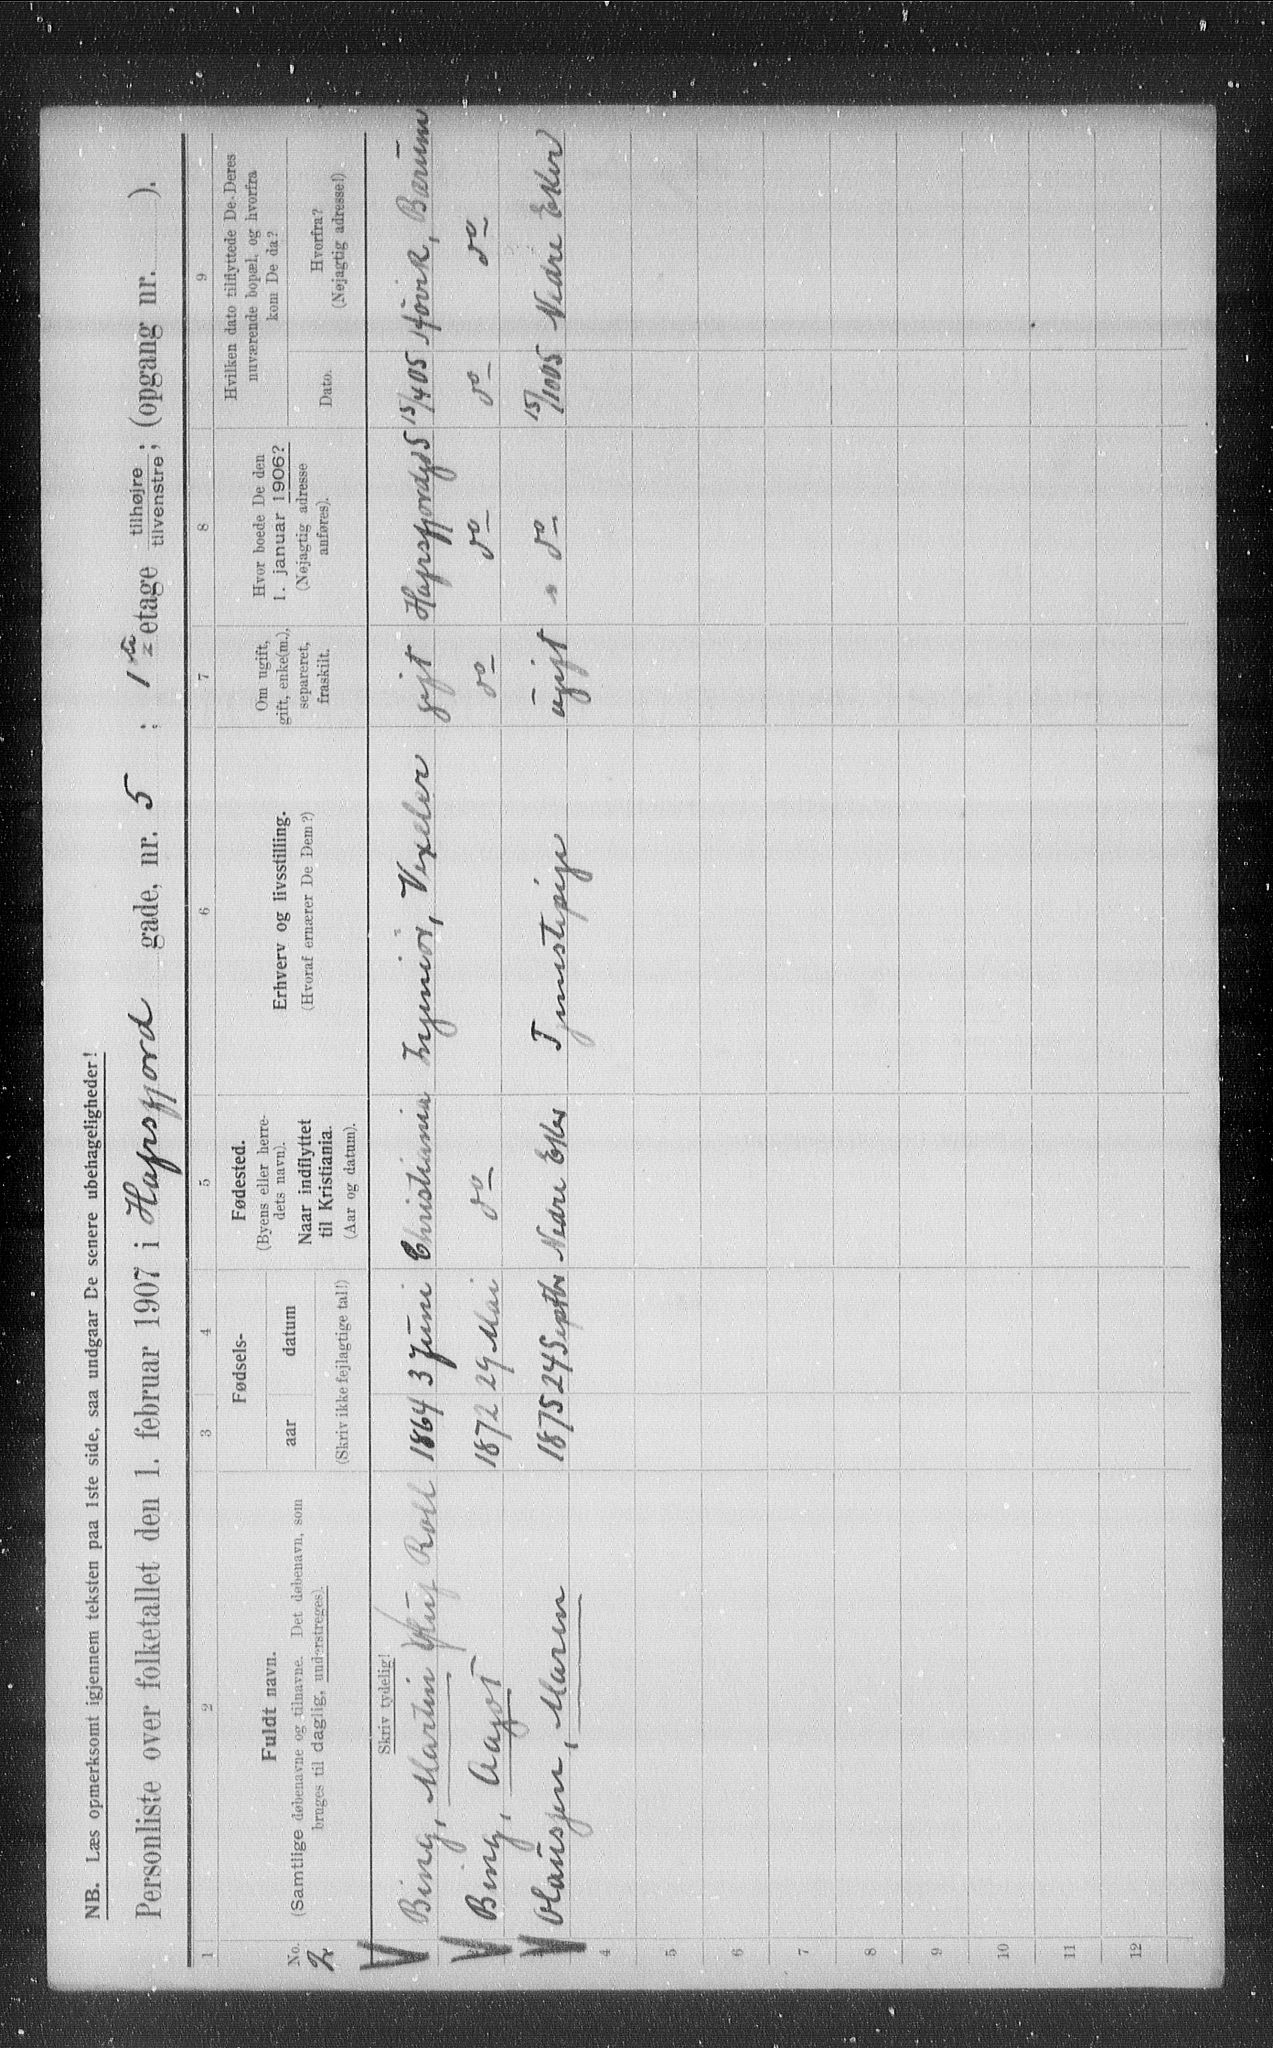 NB. Læs opmerksomt igjennem teksten paa 1ste side, saa undgaar De senere ubehageligheder!
Personliste over folketallet den 1. februar 1907 i Hafrsfjord gade, nr. 5 ; 1ste etage tilhøjre / tilvenstre ; (opgang nr. ).
1 2 3 4 5 6 7 8 9
No. 2
Fuldt navn.
(Samtlige døbenavne og tilnavne. Det døbenavn, som
bruges til daglig, understreges).
Fødsels-
aar datum
(Skriv ikke fejlagtige tal!)
Fødested.
(Byens eller herre-
dets navn).
Naar indflyttet
til Kristiania.
(Aar og datum).
Erhverv og livsstilling.
(Hvoraf ernærer De Dem?)
Om ugift,
gift, enke(m.),
separeret,
fraskilt.
Hvor boede De den
1. januar 1906?
(Nøjagtig adresse
anføres).
Hvilken dato tilflyttede De Deres
nuværende bopæl, og hvorfra
kom De da?
Dato.
Hvorfra?
(Nøjagtig adresse!)
Skriv tydelig!
Bing, Martin Roll 1864 3 Juni Christiania Ingeniør, Vexeler gift Hafrsfjordgd 5 15/4 05 Høvik, Bærum
Bing, Aagot 1872 29 Mai do do do do do
Olausen, Maren 1875 24 Septbr Nedre Eker Tjenestepige ugift do 15/10 05 Nedre Eker
4
5
6
7
8
9
10
11
12